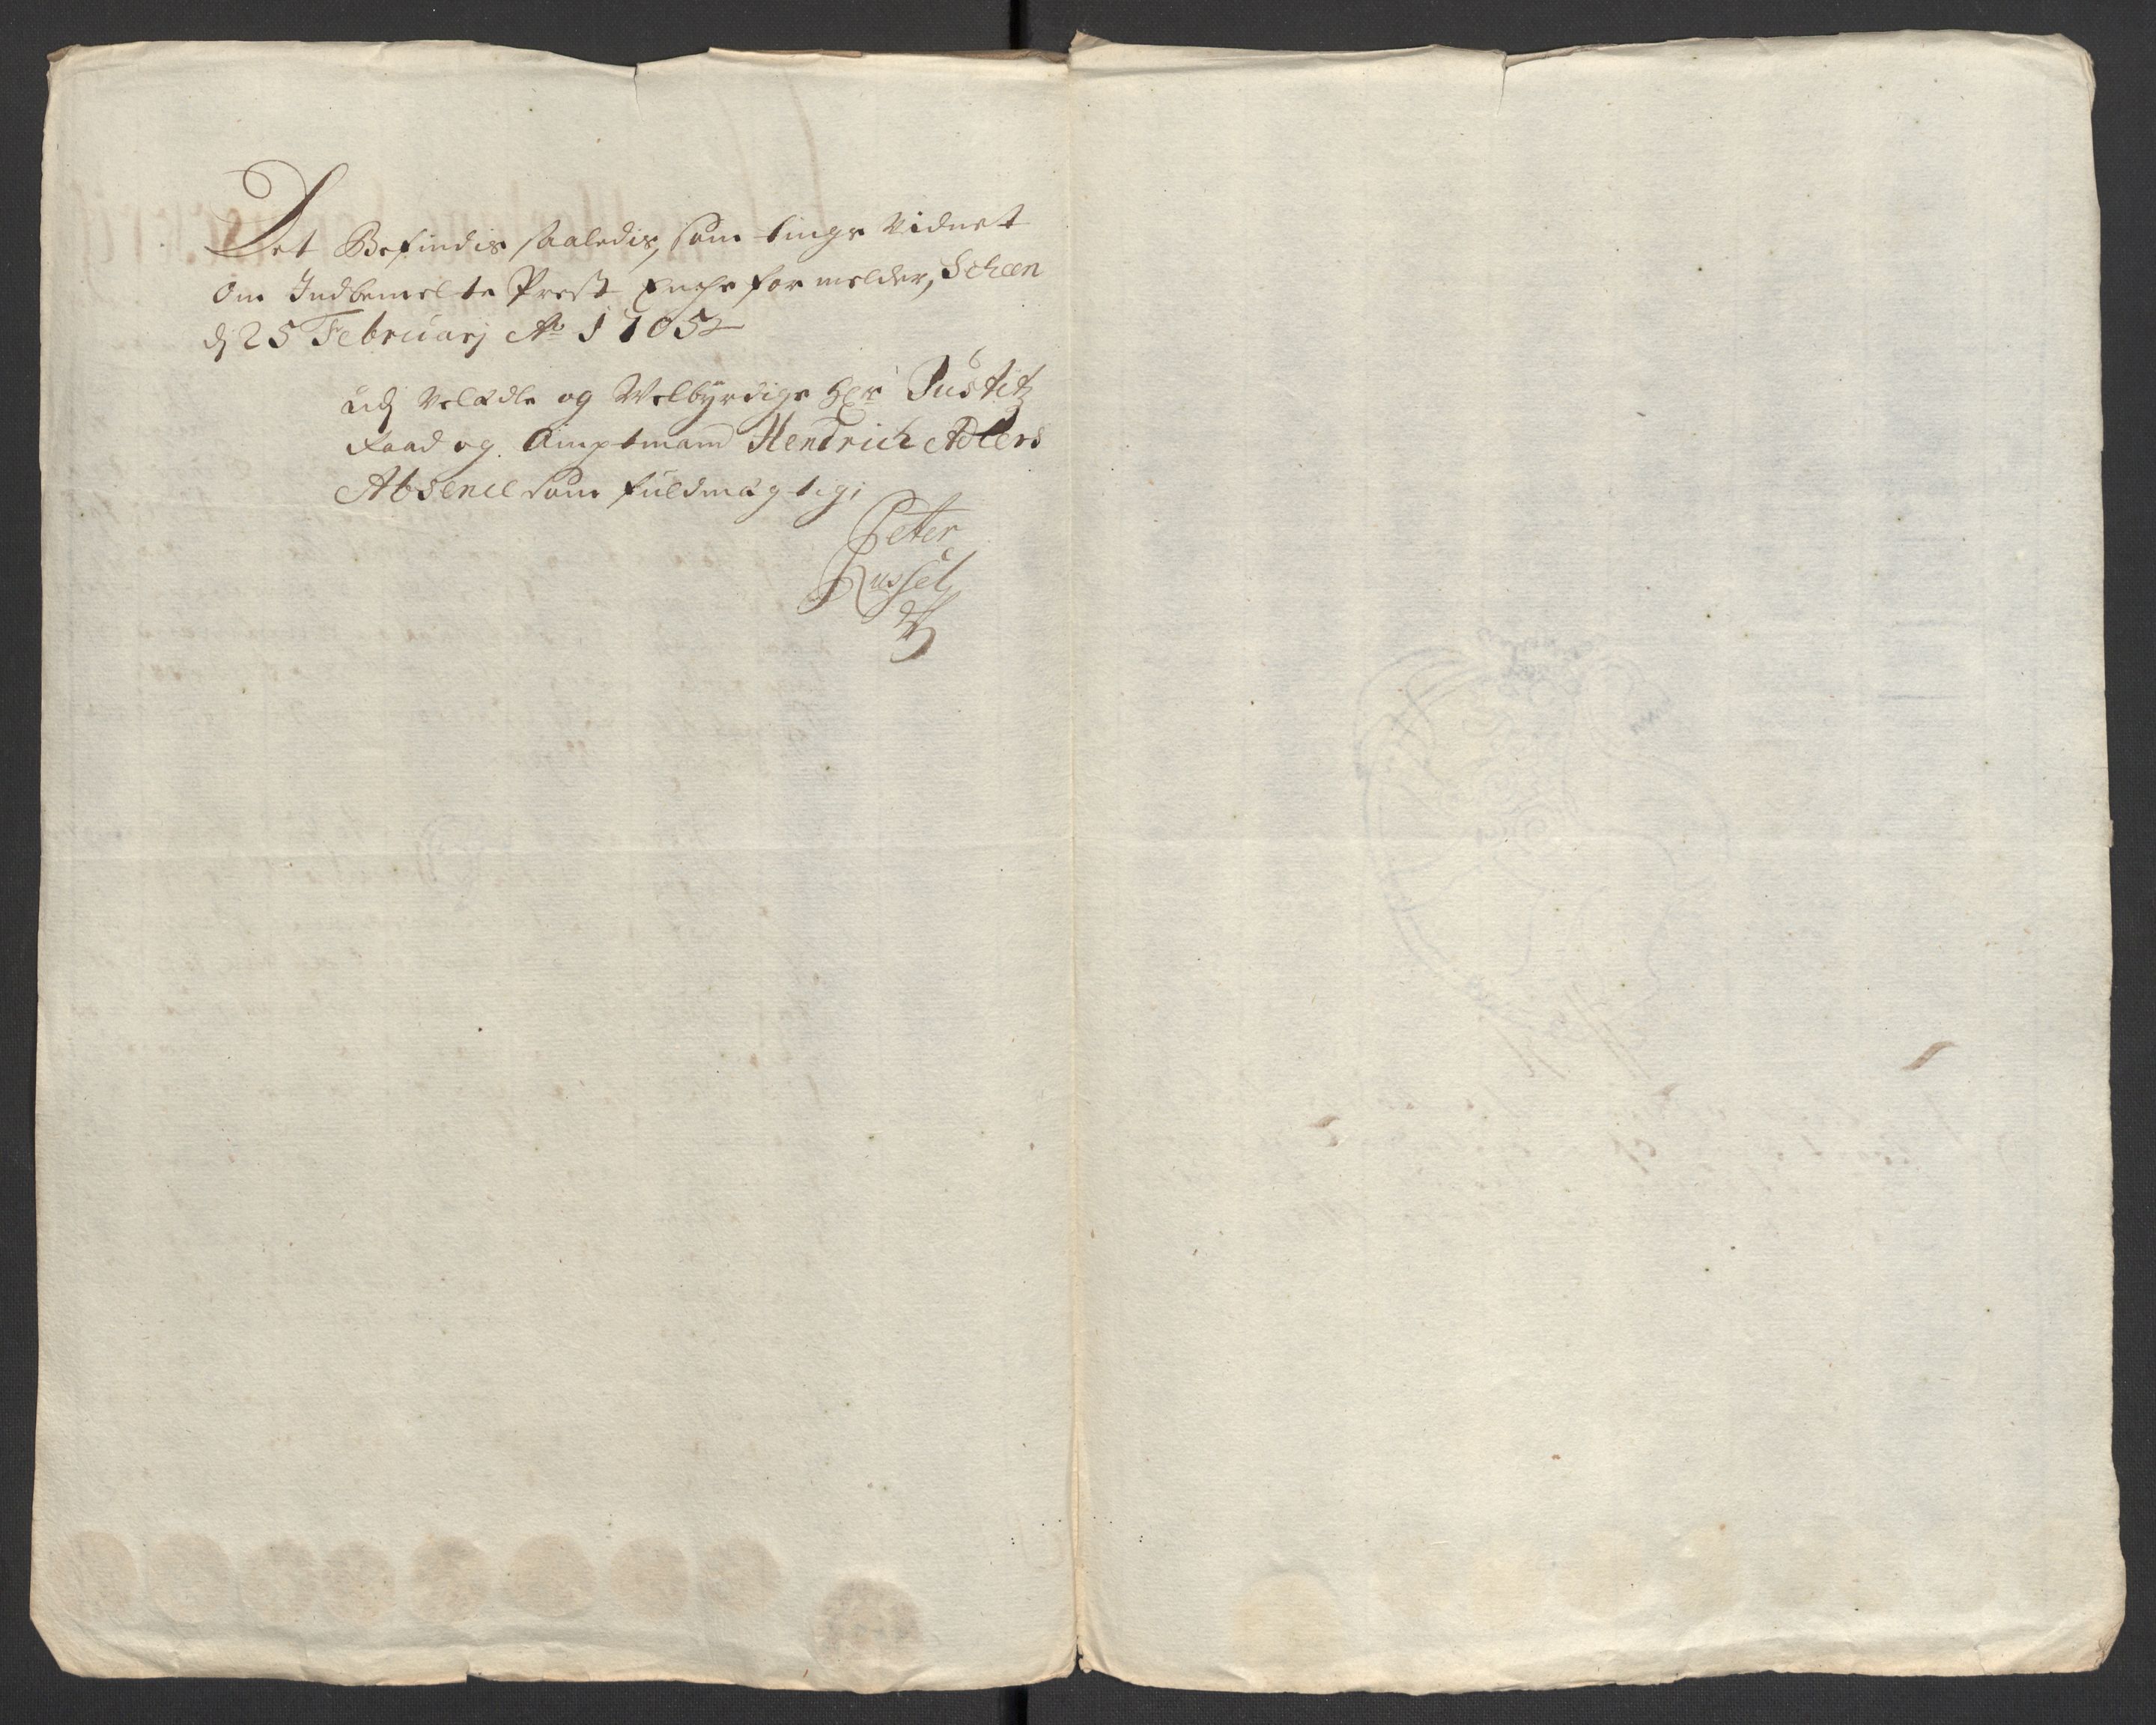 Det Befindis saaledis, som tings Vidnet
Om Indbemelte Prest Enche formelder, Scheen
dj 25 Februarj Ao 1705
udj Velædle og Welbyrdige Hr Justitz
Raad og Amptmand Hendrich Adlers
Absence som fuldmægtig;
Peter
Russel